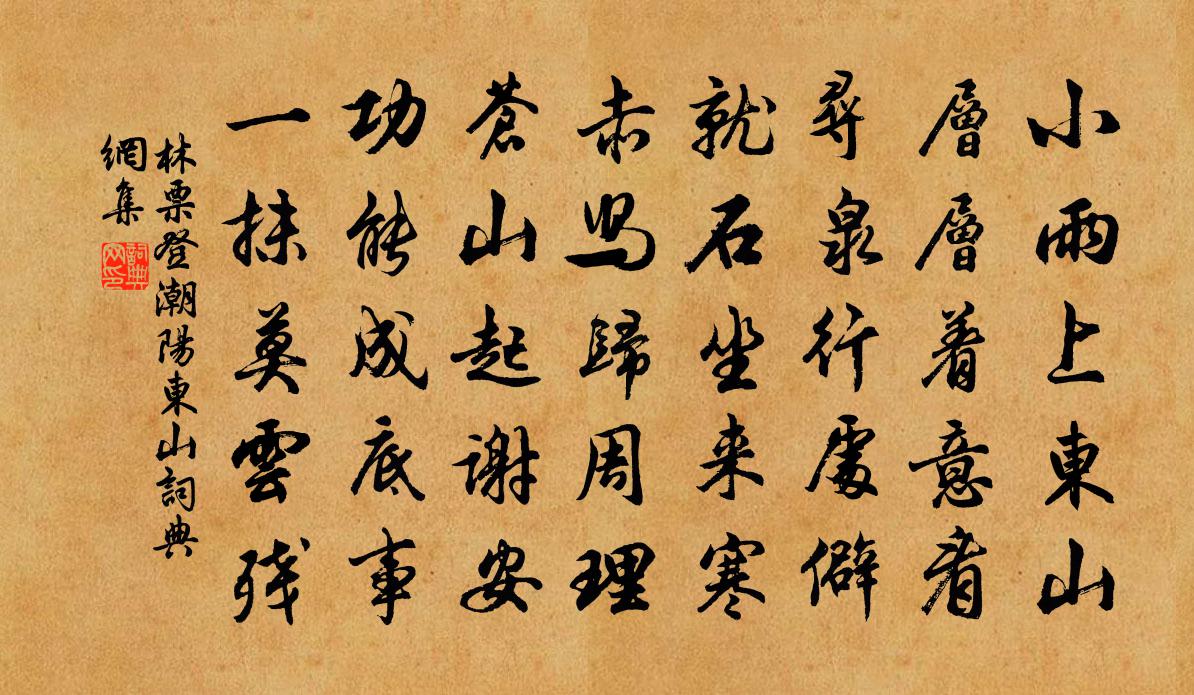 小雨上東山
層層着意看
尋泉行處僻
就石坐来寒
赤舄歸周理
蒼山起謝安
功能成底事
一抹莫雲残
林栗登潮陽東山詞典
網集
詞典
网印